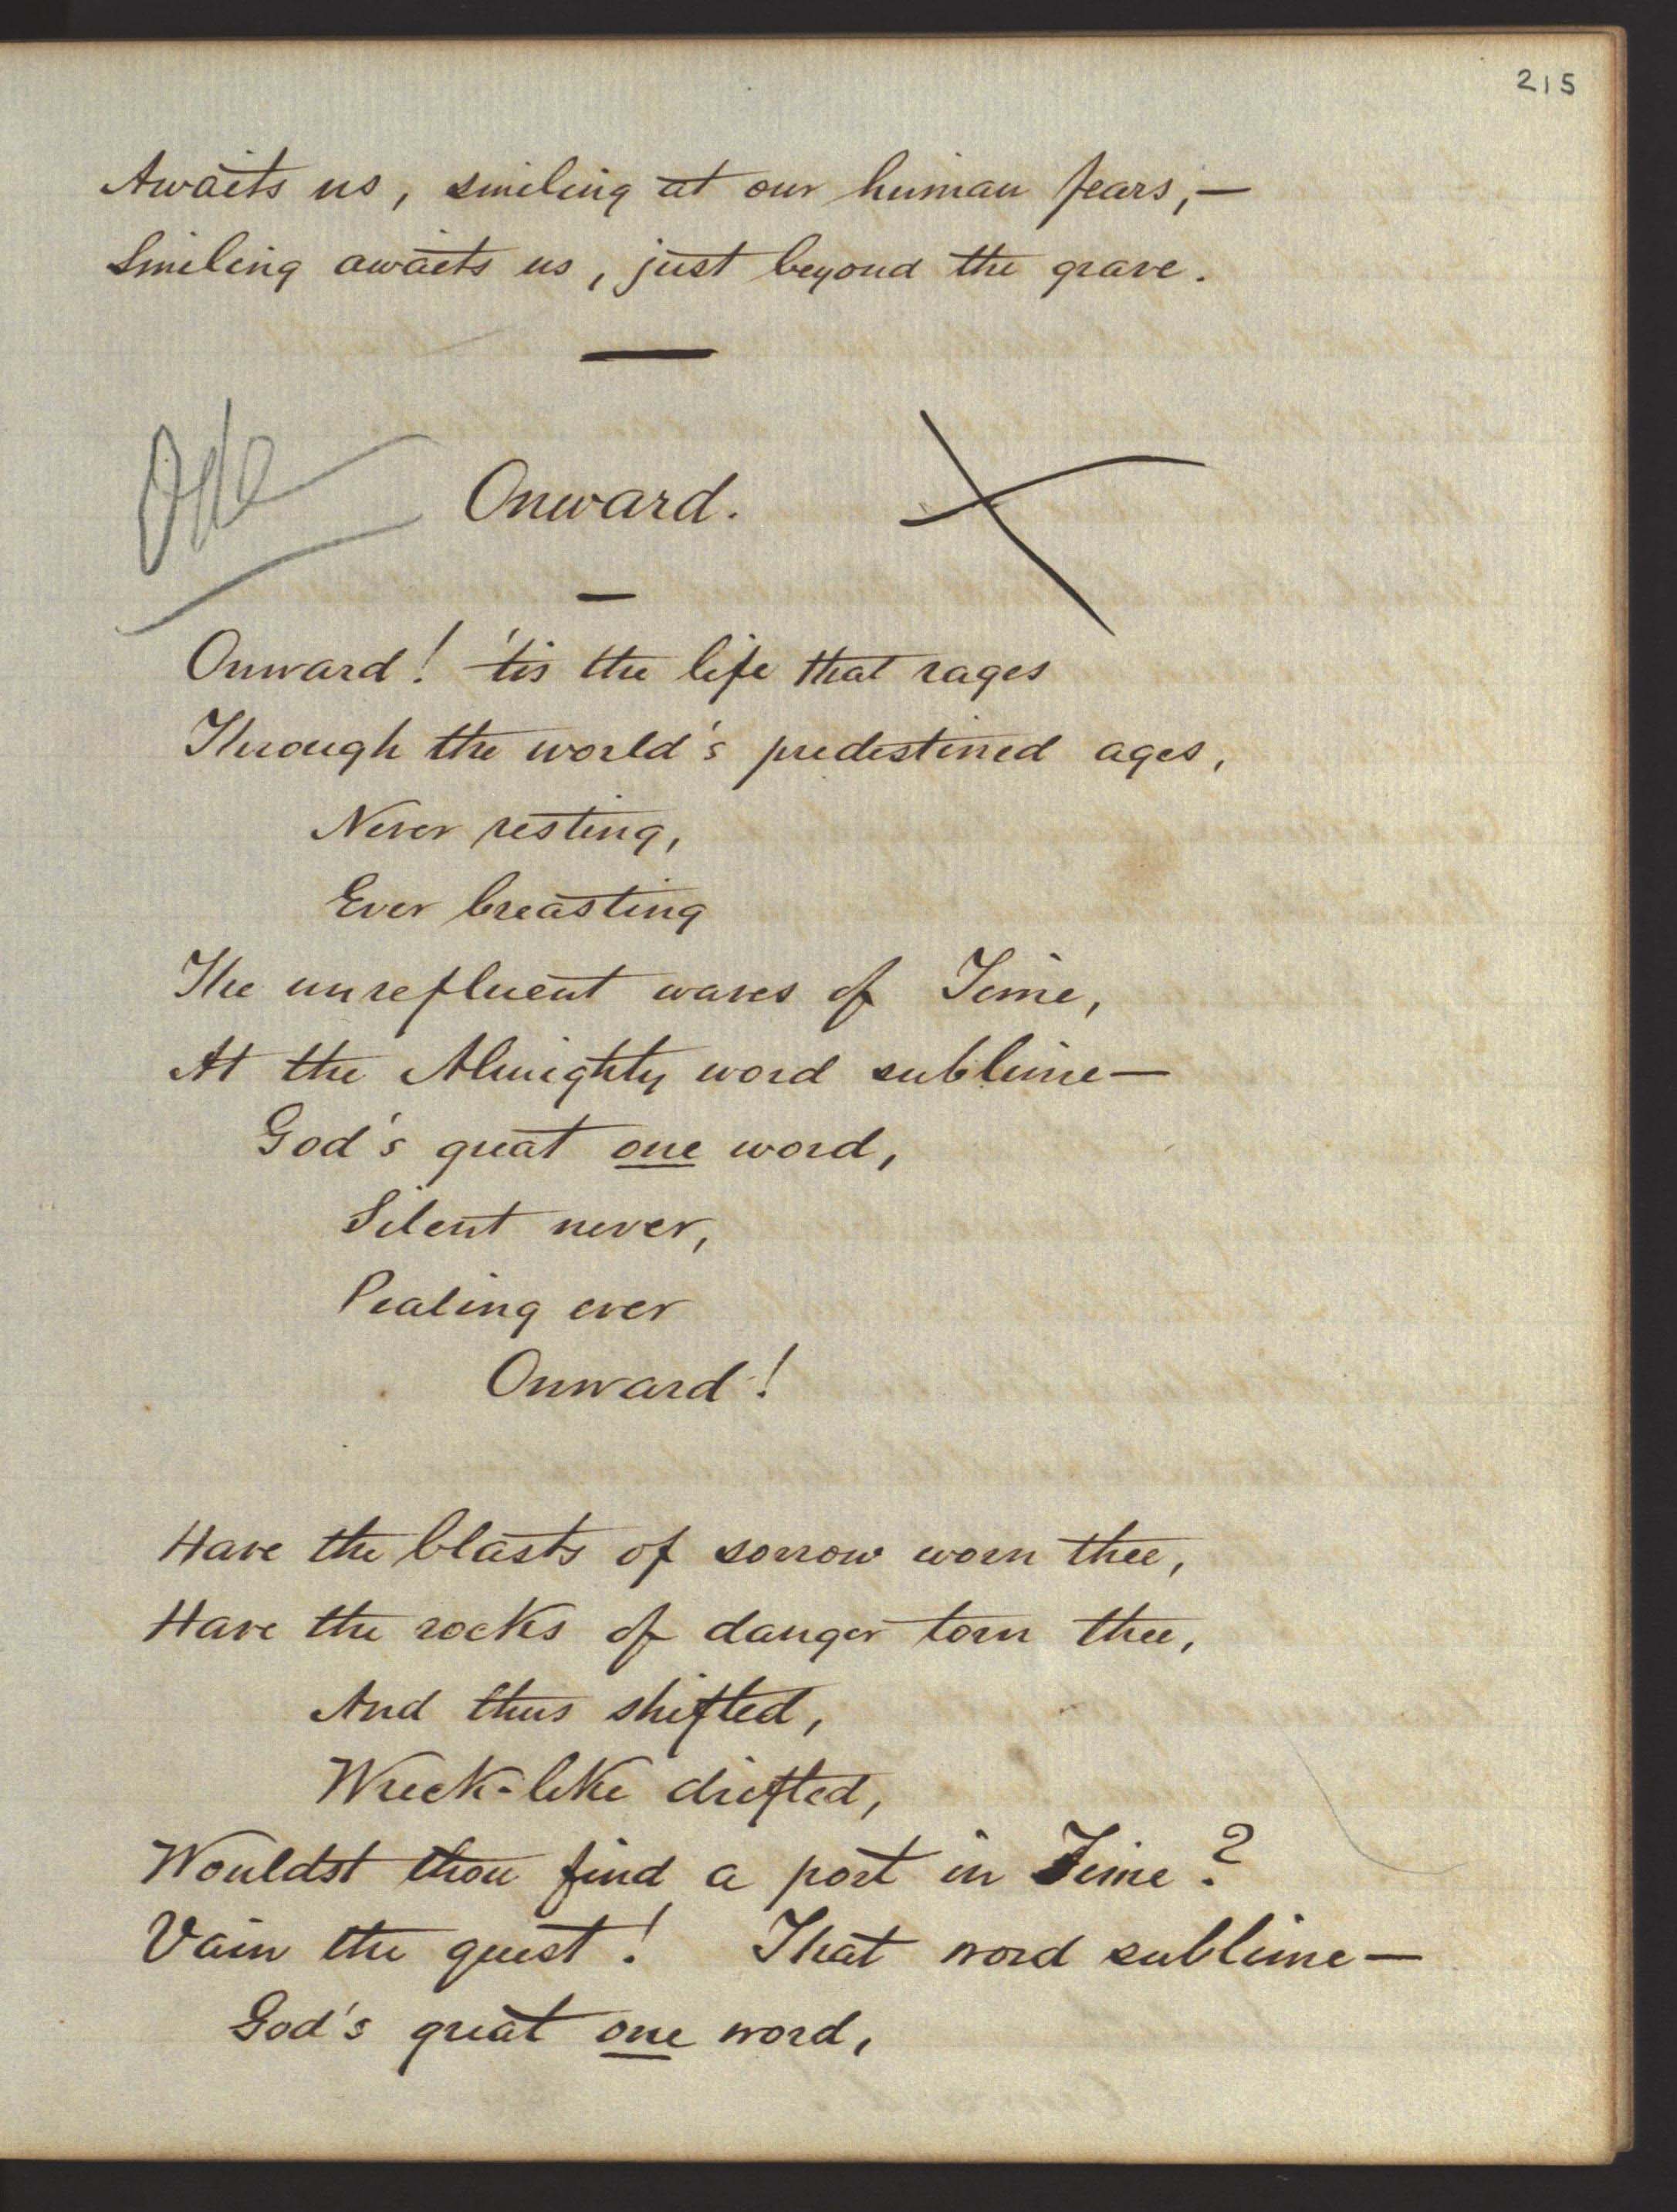 215
Awaits us, smiling at our human fears,—
Smiling awaits us, just beyond the grave.
Ode
Onward.
Onward! 'tis the life that rages
Through the world's predestined ages,
Never resting,
Ever breasting
The unrefluent waves of Time,
At the Almighty word sublime—
God's great one word,
Silent never,
Pealing ever
Onward!
Have the blasts of sorrow worn thee,
Have the rocks of danger torn thee,
And thus shifted,
Wreck-like drifted,
Wouldst thou find a port in Time?
Vain the quest! That word sublime—
God's great one word,